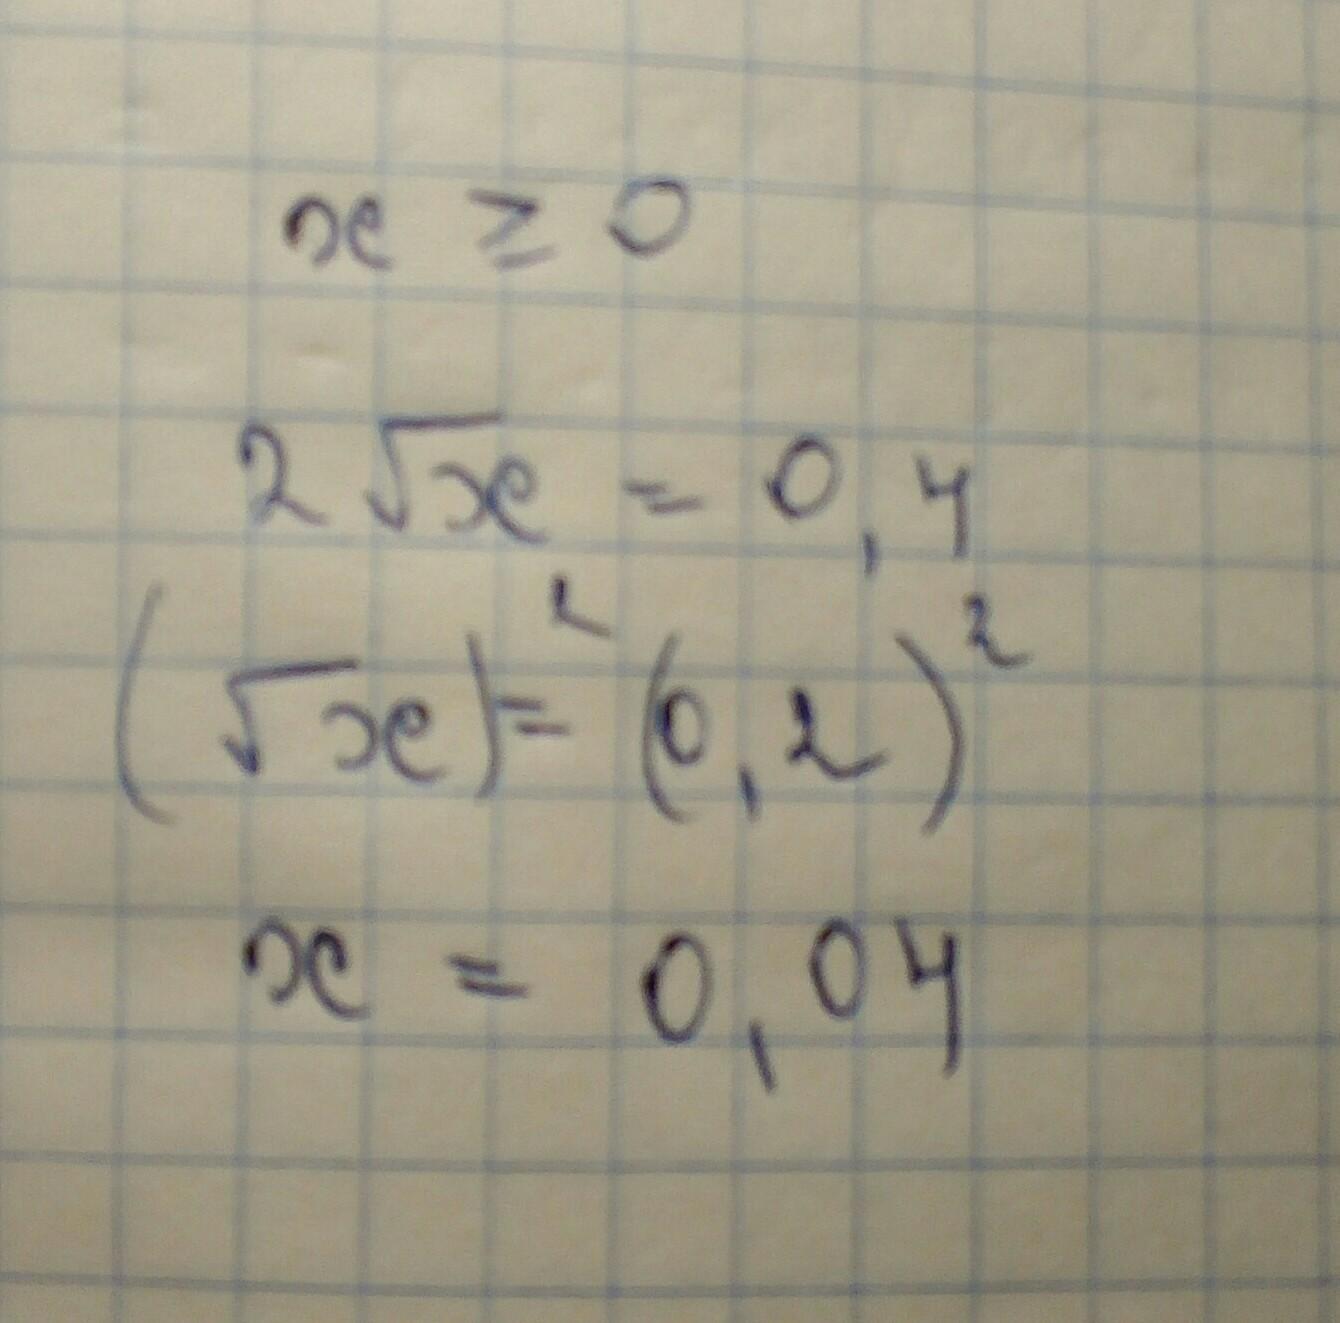 x ≥ 0
2√x = 0,4
(√x)² = (0,2)²
x = 0,04